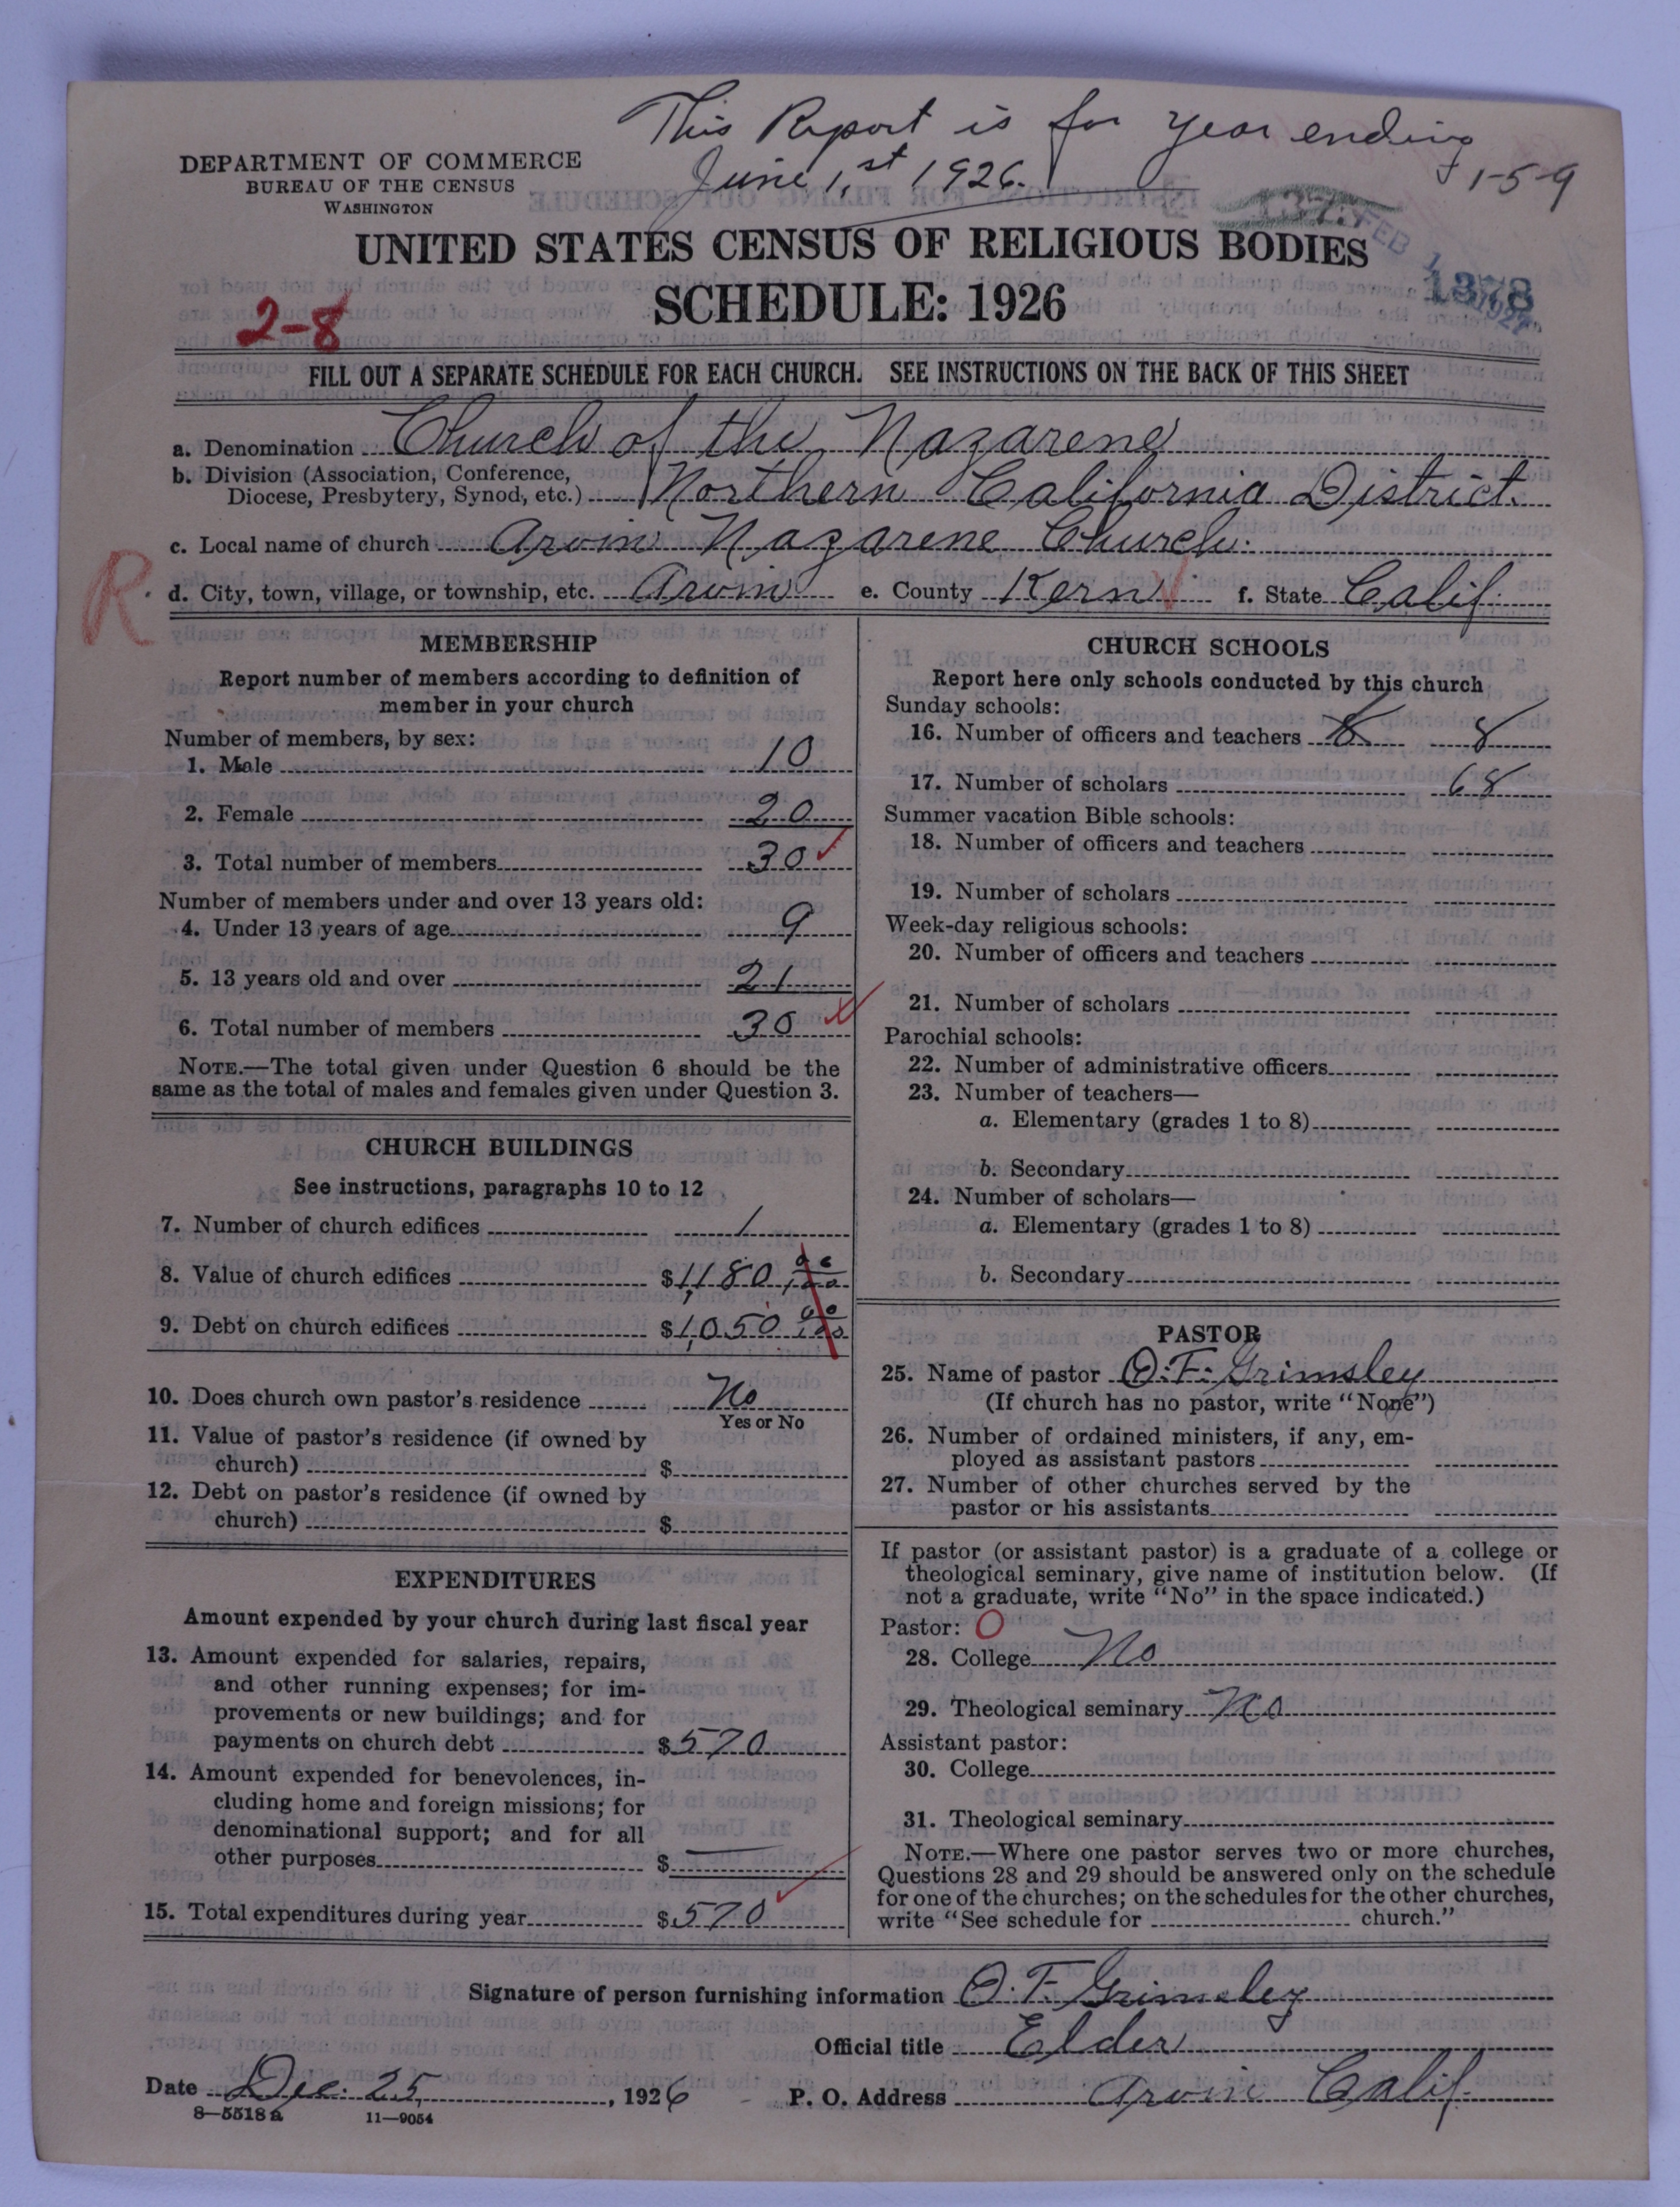 This Report is for year ending
June 1,st 1926.
1-5-9
DEPARTMENT OF COMMERCE
BUREAU OF THE CENSUS
WASHINGTON
UNITED STATES CENSUS OF RELIGIOUS BODIES
SCHEDULE: 1926
1378
2-8
FILL OUT A SEPARATE SCHEDULE FOR EACH CHURCH. SEE INSTRUCTIONS ON THE BACK OF THIS SHEET
a. Denomination Church of the Nazarene
b. Division (Association, Conference,
Diocese, Presbytery, Synod, etc.) Northern California District.
c. Local name of church Arvin Nazarene Church.
R
d. City, town, village, or township, etc. Arvin e. County Kern f. State Calif.
MEMBERSHIP
Report number of members according to definition of
member in your church
Number of members, by sex:
1. Male 10
2. Female 20
3. Total number of members 30
Number of members under and over 13 years old:
4. Under 13 years of age 9
5. 13 years old and over 21
6. Total number of members 30
NOTE.—The total given under Question 6 should be the
same as the total of males and females given under Question 3.
CHURCH BUILDINGS
See instructions, paragraphs 10 to 12
7. Number of church edifices 1
8. Value of church edifices $1,180
9. Debt on church edifices $1,050
10. Does church own pastor's residence No
Yes or No
11. Value of pastor's residence (if owned by
church) $
12. Debt on pastor's residence (if owned by
church) $
EXPENDITURES
Amount expended by your church during last fiscal year
13. Amount expended for salaries, repairs,
and other running expenses; for im-
provements or new buildings; and for
payments on church debt $570
14. Amount expended for benevolences, in-
cluding home and foreign missions; for
denominational support; and for all
other purposes $ —
15. Total expenditures during year $570
CHURCH SCHOOLS
Report here only schools conducted by this church
Sunday schools:
16. Number of officers and teachers 8
17. Number of scholars 68
Summer vacation Bible schools:
18. Number of officers and teachers
19. Number of scholars
Week-day religious schools:
20. Number of officers and teachers
21. Number of scholars
Parochial schools:
22. Number of administrative officers
23. Number of teachers—
a. Elementary (grades 1 to 8)
b. Secondary
24. Number of scholars—
a. Elementary (grades 1 to 8)
b. Secondary
PASTOR
25. Name of pastor O. F. Grimsley
(If church has no pastor, write "None")
26. Number of ordained ministers, if any, em-
ployed as assistant pastors
27. Number of other churches served by the
pastor or his assistants
If pastor (or assistant pastor) is a graduate of a college or
theological seminary, give name of institution below. (If
not a graduate, write "No" in the space indicated.)
Pastor: O
28. College No
29. Theological seminary No
Assistant pastor:
30. College
31. Theological seminary
NOTE.—Where one pastor serves two or more churches,
Questions 28 and 29 should be answered only on the schedule
for one of the churches; on the schedules for the other churches,
write "See schedule for church."
Signature of person furnishing information O. F. Grimsley
Official title Elder
Date Dec. 25, 1926 P. O. Address Arvin Calif.
8—5518 a 11—9054